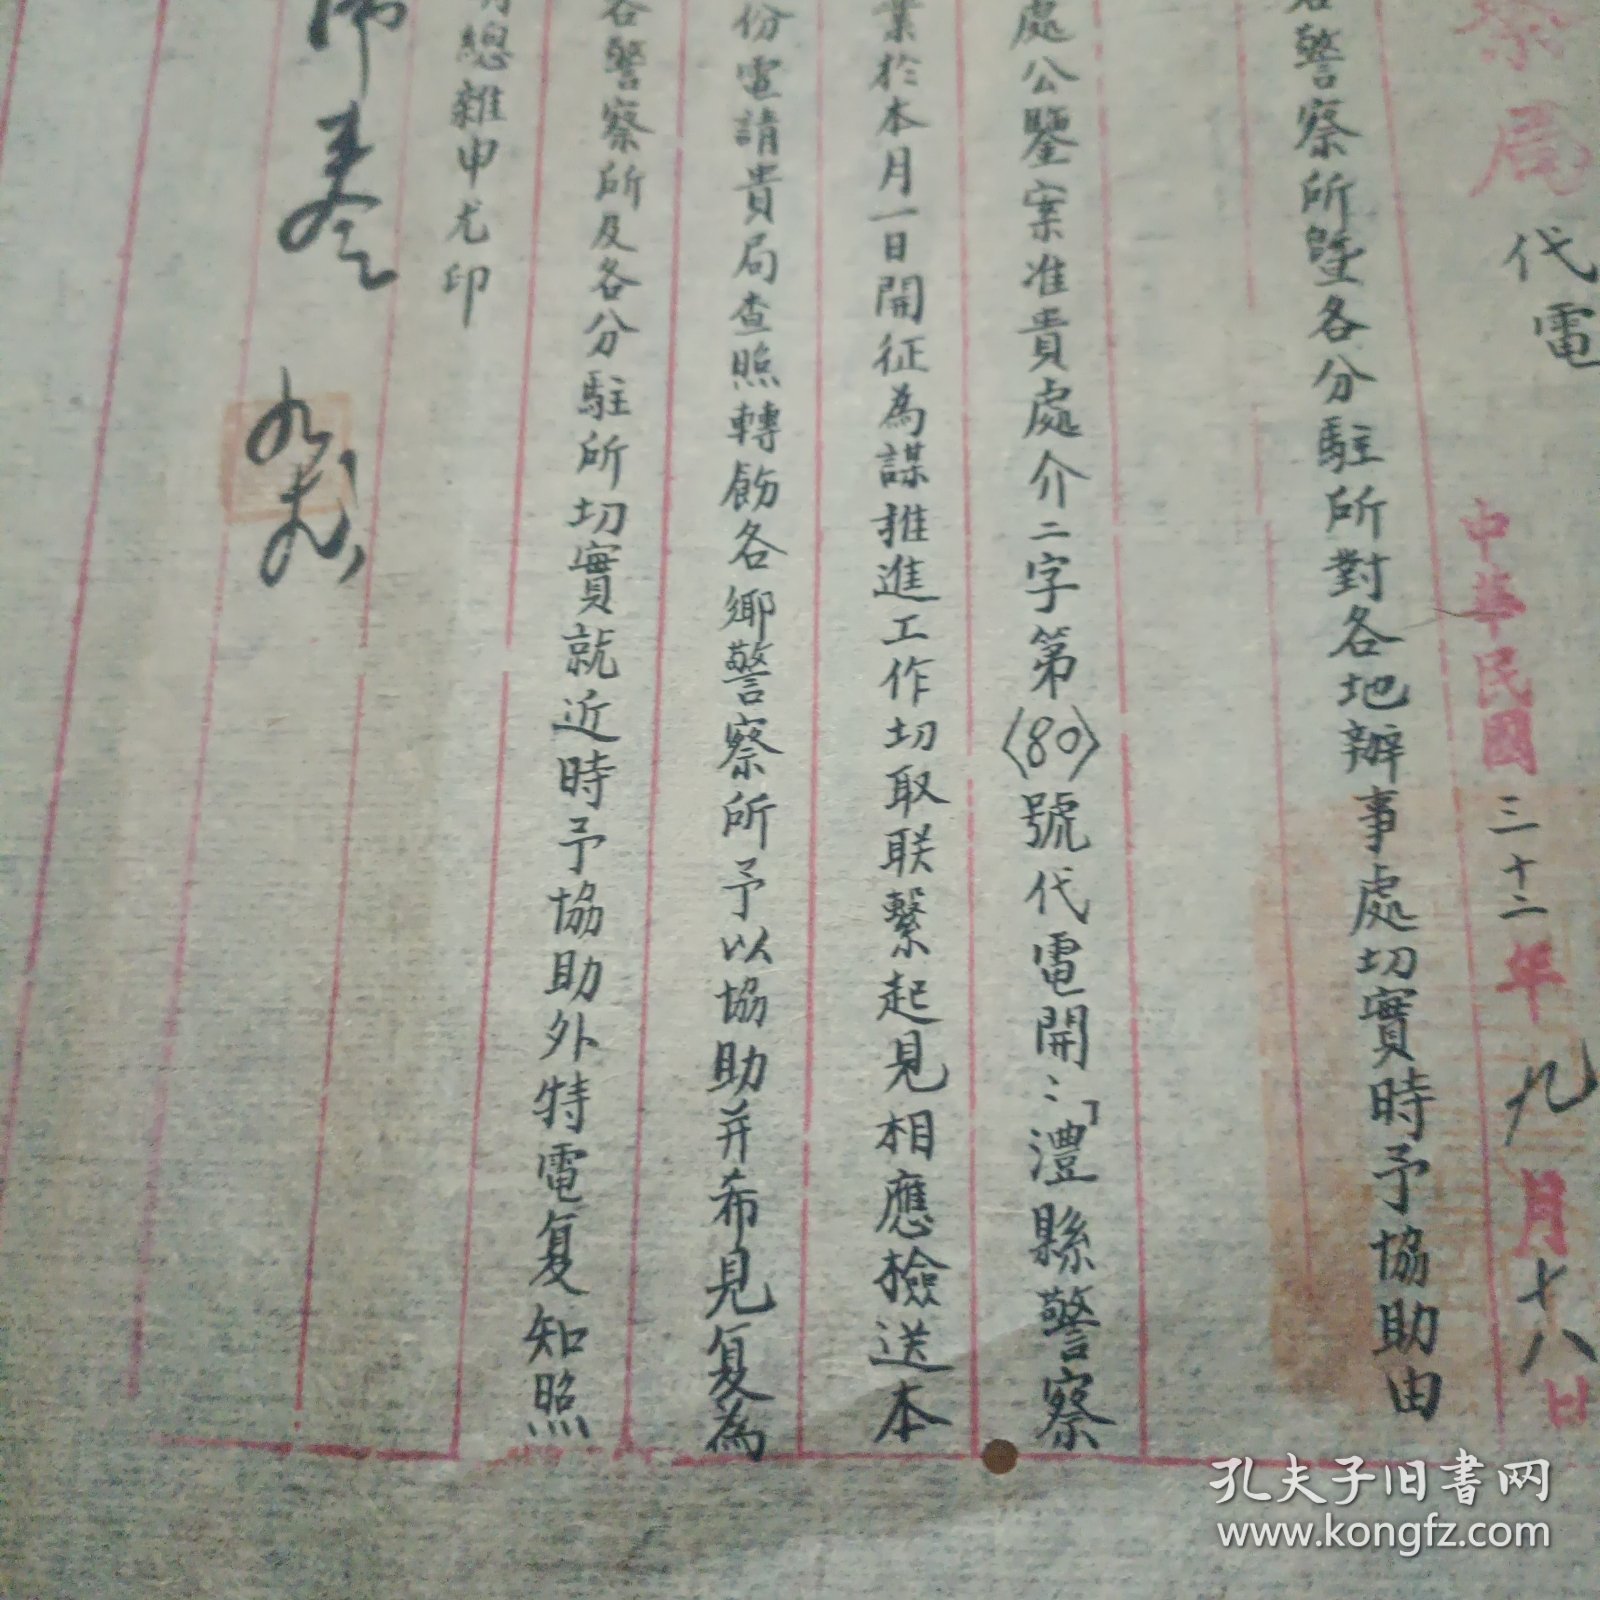 察局代電 中華民國三十二年九月十八日
警察所暨各分駐所對各地辦事處切實時予協助由
處公鑒案准貴處介二字第〈80〉號代電開：「澧縣警察
業於本月一日開征為謀推進工作切取联繫起見相應檢送本
份電請貴局查照轉飭各鄉警察所予以協助并希見复為
各警察所及各分駐所切實就近時予協助外特電复知照
總雜申尤印
孔夫子旧书网
www.kongfz.com